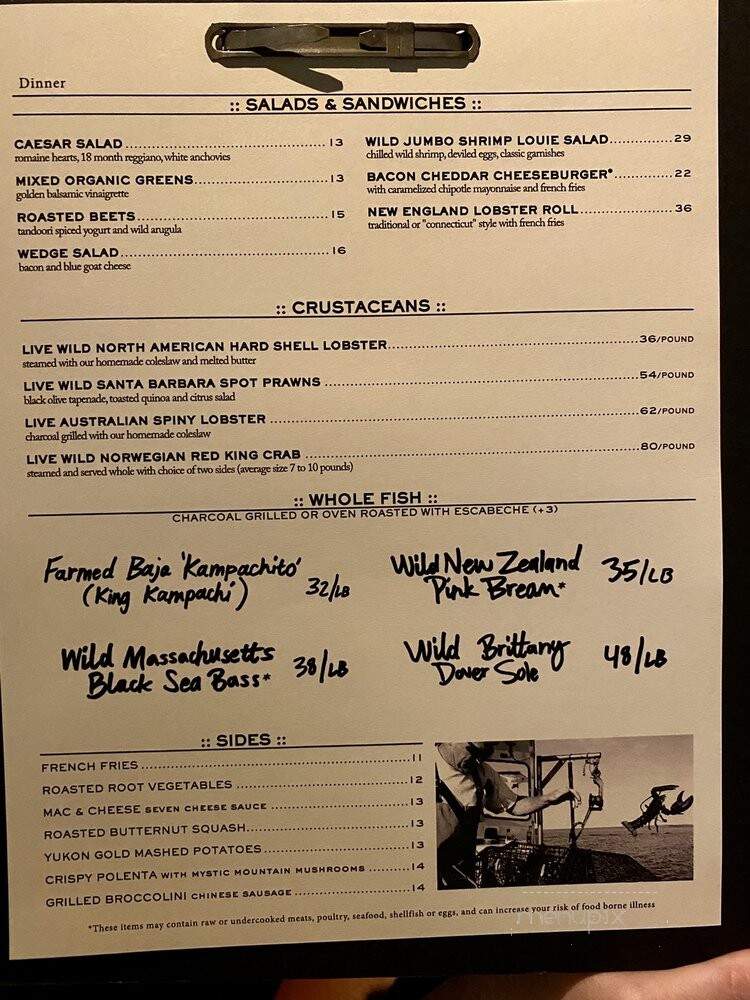 Dinner
:: SALADS & SANDWICHES ::
CAESAR SALAD 13
romaine hearts, 18 month reggiano, white anchovies
MIXED ORGANIC GREENS 13
golden balsamic vinaigrette
ROASTED BEETS 15
tandoori spiced yogurt and wild arugula
WEDGE SALAD 16
bacon and blue goat cheese
WILD JUMBO SHRIMP LOUIE SALAD 29
chilled wild shrimp, deviled eggs, classic garnishes
BACON CHEDDAR CHEESEBURGER* 22
with caramelized chipotle mayonnaise and french fries
NEW ENGLAND LOBSTER ROLL 36
traditional or "connecticut" style with french fries
:: CRUSTACEANS ::
LIVE WILD NORTH AMERICAN HARD SHELL LOBSTER 36/POUND
steamed with our homemade coleslaw and melted butter
LIVE WILD SANTA BARBARA SPOT PRAWNS 54/POUND
black olive tapenade, toasted quinoa and citrus salad
LIVE AUSTRALIAN SPINY LOBSTER 62/POUND
charcoal grilled with our homemade coleslaw
LIVE WILD NORWEGIAN RED KING CRAB 80/POUND
steamed and served whole with choice of two sides (average size 7 to 10 pounds)
:: WHOLE FISH ::
CHARCOAL GRILLED OR OVEN ROASTED WITH ESCABECHE (+3)
Farmed Baja 'Kampachito'
(King Kampachi) 32/LB
Wild New Zealand
Pink Bream* 35/LB
Wild Massachusetts
Black Sea Bass* 38/LB
Wild Brittany
Dover Sole 48/LB
:: SIDES ::
FRENCH FRIES 11
ROASTED ROOT VEGETABLES 12
MAC & CHEESE SEVEN CHEESE SAUCE 13
ROASTED BUTTERNUT SQUASH 13
YUKON GOLD MASHED POTATOES 13
CRISPY POLENTA WITH MYSTIC MOUNTAIN MUSHROOMS 14
GRILLED BROCCOLINI CHINESE SAUSAGE 14
*These items may contain raw or undercooked meats, poultry, seafood, shellfish or eggs, and can increase your risk of food borne illness
menupix